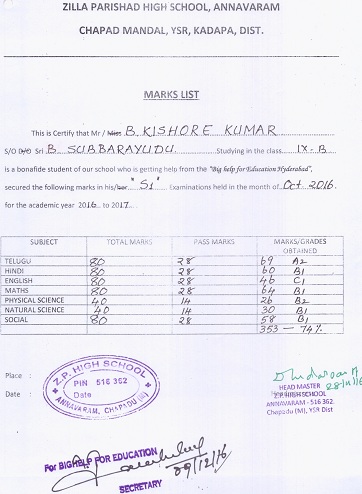 ZILLA PARISHAD HIGH SCHOOL, ANNAVARAM
CHAPAD MANDAL, YSR, KADAPA, DIST.
MARKS LIST
This is Certify that Mr / Miss B. KISHORE KUMAR
S/O D/O Sri B. SUBBARAYUDU. Studying in the class IX - B
is a bonafide student of our school who is getting help from the "Big help for Education Hyderabad",
secured the following marks in his/her "S1" Examinations held in the month of Oct 2016.
for the academic year 2016 to 2017.
SUBJECT TOTAL MARKS PASS MARKS MARKS/GRADES OBTAINED
TELUGU 80 28 69 A2
HINDI 80 28 60 B1
ENGLISH 80 28 46 C1
MATHS 80 28 64 B1
PHYSICAL SCIENCE 40 14 26 B2
NATURAL SCIENCE 40 14 30 B1
SOCIAL 80 28 58 B1
353 — 74%
Place :
Date :
Z.P. HIGH SCHOOL
PIN 516 362
Date
ANNAVARAM, CHAPADU (M)
HEAD MASTER
Z.P. HIGH SCHOOL
ANNAVARAM - 516 362.
Chapadu (M), YSR Dist
For BIGHELP FOR EDUCATION
09/12/16
SECRETARY